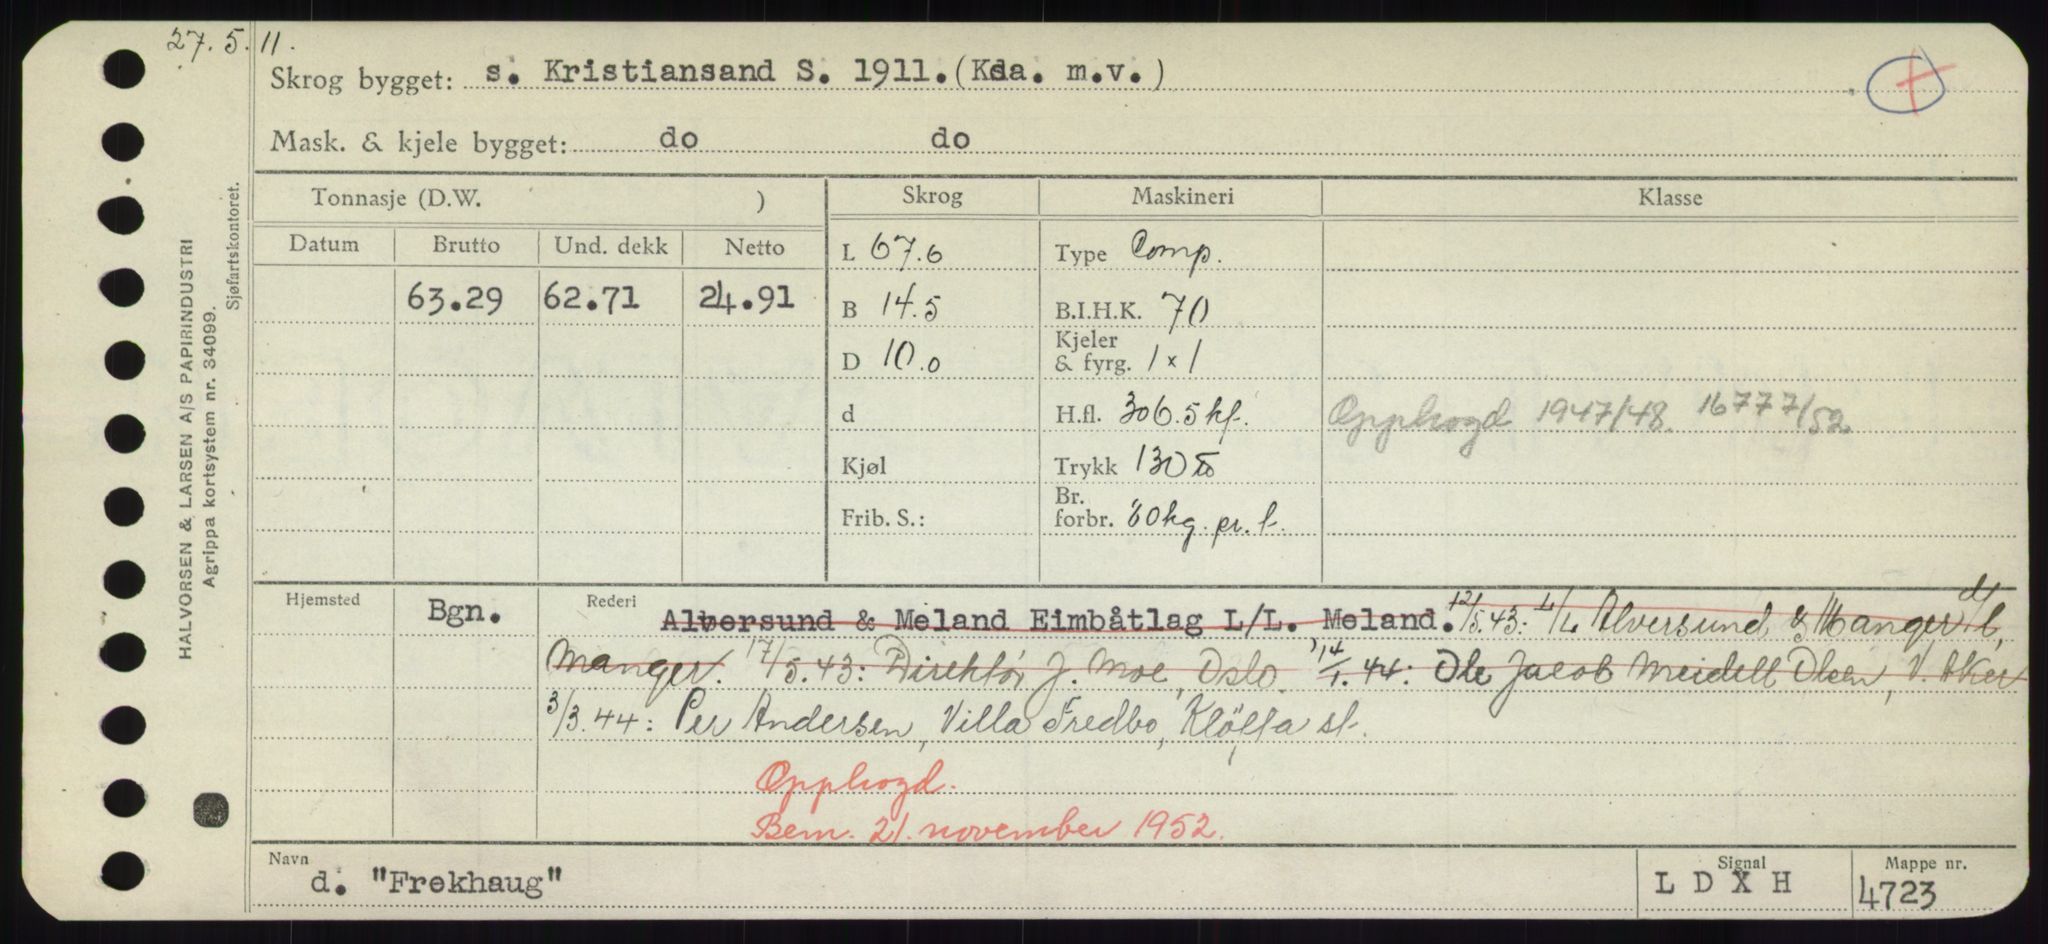 27. 5. 11.
Skrog bygget: s. Kristiansand S. 1911. (Ksa. m.v.)
+
Mask. & kjele bygget: do do
HALVORSEN & LARSEN A/S PAPIRINDUSTRI
Agrippa kortsystem nr. 34099.
Sjøfartskontoret.
Tonnasje (D.W. ) Skrog Maskineri Klasse
Datum Brutto Und. dekk Netto L 67.6 Type Comp.
63.29 62.71 24.91 B 14.5 B.I.H.K. 70
D 10.0 Kjeler & fyrg. 1 x 1
d H.fl. 306.5 kf. Opphogd 1947/48. 16777/52
Kjøl Trykk 130
Frib. S.: Br. forbr. 60 kg. pr. t.
Hjemsted Bgn. Rederi Alversund & Meland Eimbåtlag L/L. Meland. 12/5.43: L/L Alversund & Manger
Manger. 17/5.43: Direktør J. Moe, Oslo. 14/1.44: Ole Jacob Meidell Olsen, V. Aker
3/3.44: Per Andersen, Villa Fredbo, Kløfta st.
Opphogd.
Bem. 21. november 1952.
Navn d. "Frekhaug" Signal L D X H Mappe nr. 4723